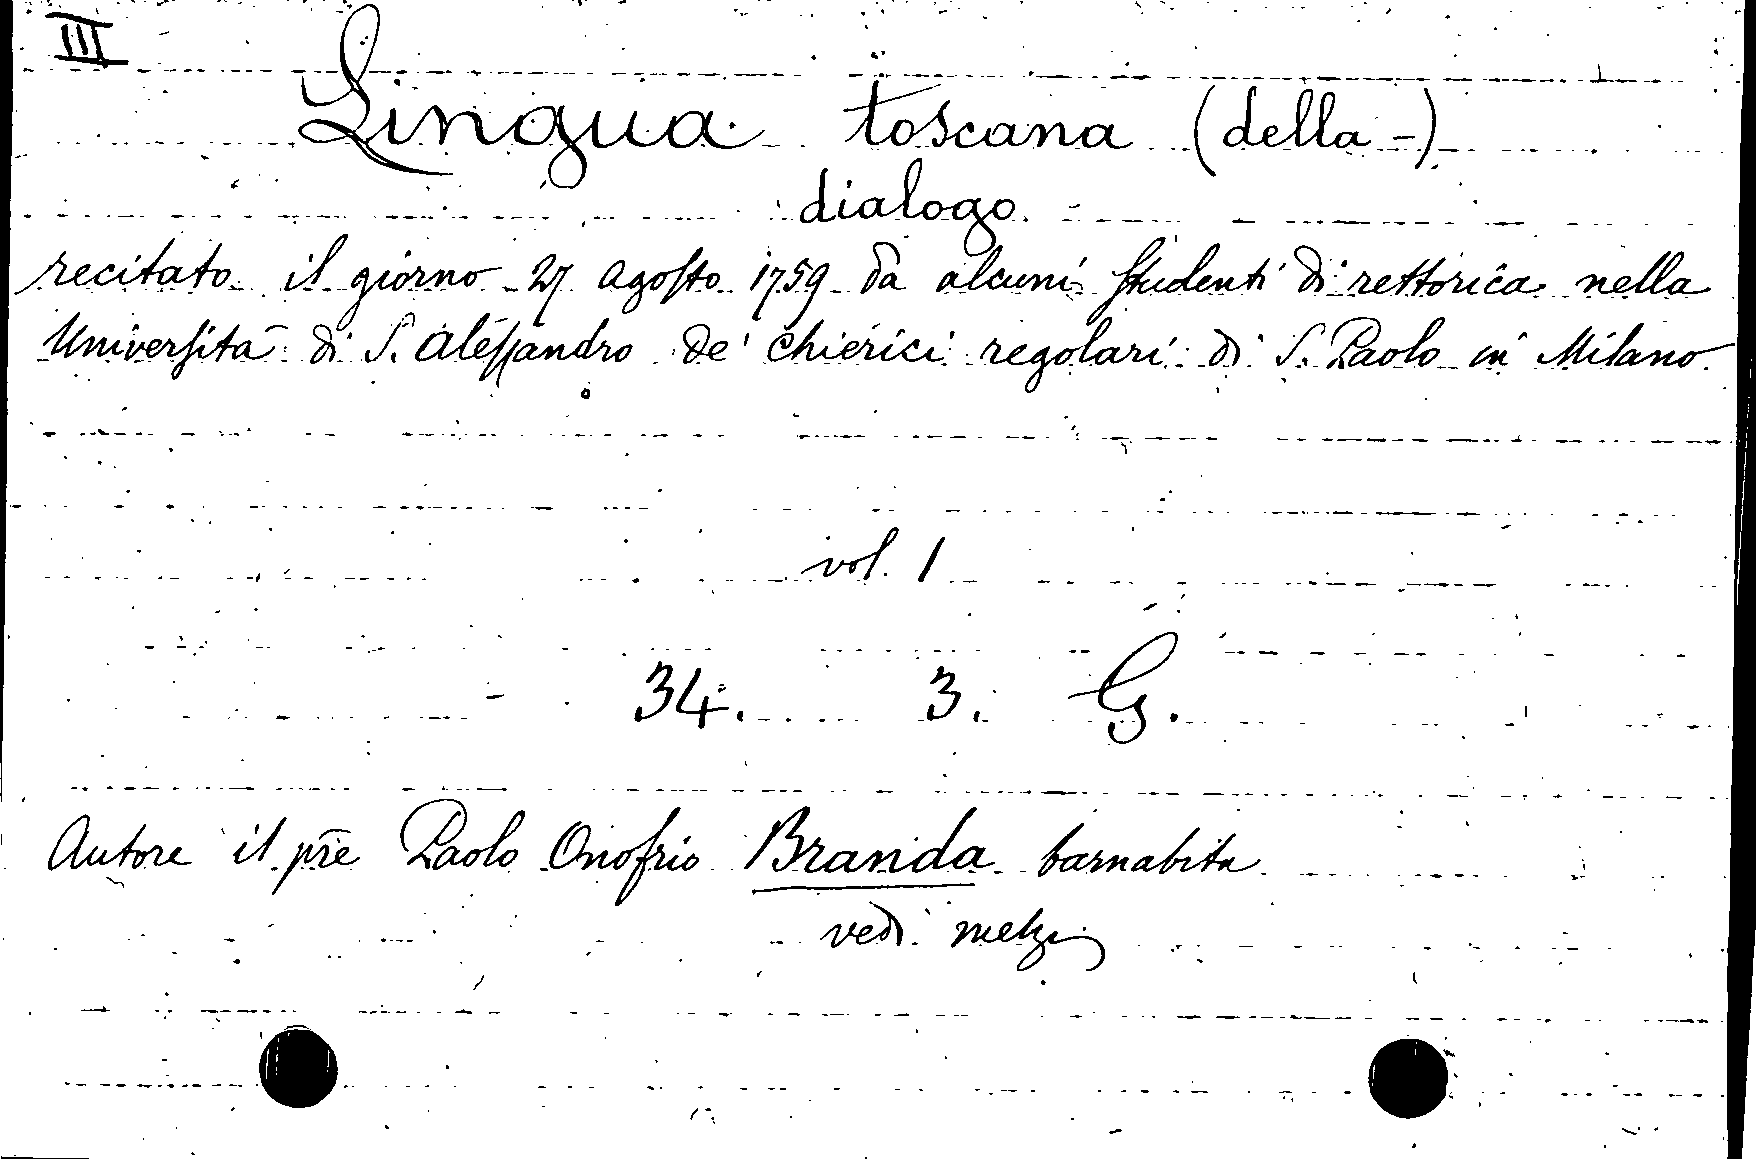 III
Lingua toscana (della -)
dialogo
recitato il giorno 27 Agosto 1759 da alcuni studenti di rettorica nella
Università di S. Alessandro de' Chierici regolari di S. Paolo in Milano.
vol. 1
34. 3. G.
Autore il pr̃e Paolo Onofrio Branda barnabita
vedi melzi